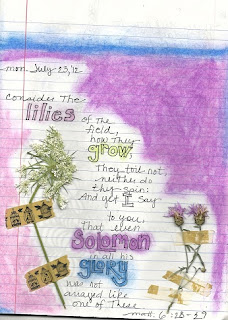 mon July 23,'12
Consider The
lilies of The
field,
how They
grow,
They toil not
neither do
they spin:
And yet I say
to you
That even
Solomon
in all his
glory
was not
arrayed like
one of These
matt. 6:28-29